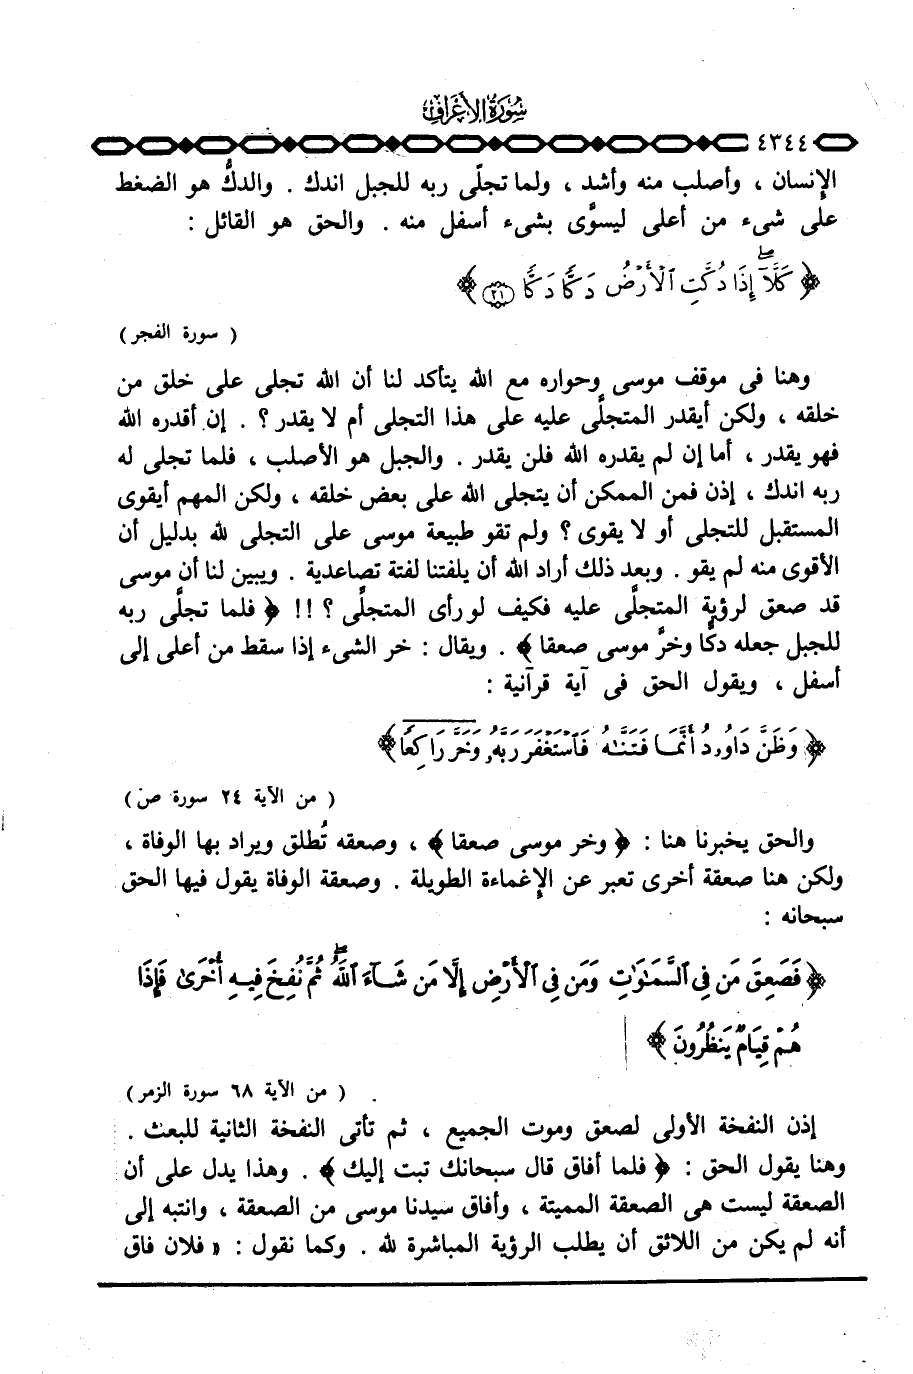 سورة الأعراف
٤٣٤٤
الإنسان ، وأصلب منه وأشد ، ولما تجلّى ربه للجبل اندك . والدكُّ هو الضغط
على شىء من أعلى ليسوَّى بشىء أسفل منه . والحق هو القائل :
﴿ كَلَّآ ۖ إِذَا دُكَّتِ ٱلْأَرْضُ دَكًّا دَكًّا ﴿٢١﴾ ﴾
( سورة الفجر )
وهنا فى موقف موسى وحواره مع الله يتأكد لنا أن الله تجلى على خلق من
خلقه ، ولكن أيقدر المتجلَّى عليه على هذا التجلى أم لا يقدر ؟ . إن أقدره الله
فهو يقدر ، أما إن لم يقدره الله فلن يقدر . والجبل هو الأصلب ، فلما تجلى له
ربه اندك ، إذن فمن الممكن أن يتجلى الله على بعض خلقه ، ولكن المهم أيقوى
المستقبل للتجلى أو لا يقوى ؟ ولم تقو طبيعة موسى على التجلى لله بدليل أن
الأقوى منه لم يقو . وبعد ذلك أراد الله أن يلفتنا لفتة تصاعدية . ويبين لنا أن موسى
قد صعق لرؤية المتجلَّى عليه فكيف لو رأى المتجلِّى ؟ !! ﴿ فلما تجلَّى ربه
للجبل جعله دكًّا وخرَّ موسى صعقا ﴾ . ويقال : خر الشىء إذا سقط من أعلى إلى
أسفل ، ويقول الحق فى آية قرآنية :
﴿ وَظَنَّ دَاوُۥدُ أَنَّمَا فَتَنَّٰهُ فَٱسْتَغْفَرَ رَبَّهُۥ وَخَرَّ رَاكِعًا ﴾
( من الآية ٢٤ سورة ص )
والحق يخبرنا هنا : ﴿ وخر موسى صعقا ﴾ ، وصعقه تُطلق ويراد بها الوفاة ،
ولكن هنا صعقة أخرى تعبر عن الإغماءة الطويلة . وصعقة الوفاة يقول فيها الحق
سبحانه :
﴿ فَصَعِقَ مَن فِى ٱلسَّمَٰوَٰتِ وَمَن فِى ٱلْأَرْضِ إِلَّا مَن شَآءَ ٱللَّهُ ۖ ثُمَّ نُفِخَ فِيهِ أُخْرَىٰ فَإِذَا
هُمْ قِيَامٌ يَنظُرُونَ ﴾
( من الآية ٦٨ سورة الزمر )
إذن النفخة الأولى لصعق وموت الجميع ، ثم تأتى النفخة الثانية للبعث .
وهنا يقول الحق : ﴿ فلما أفاق قال سبحانك تبت إليك ﴾ . وهذا يدل على أن
الصعقة ليست هى الصعقة المميتة ، وأفاق سيدنا موسى من الصعقة ، وانتبه إلى
أنه لم يكن من اللائق أن يطلب الرؤية المباشرة لله . وكما نقول : « فلان فاق